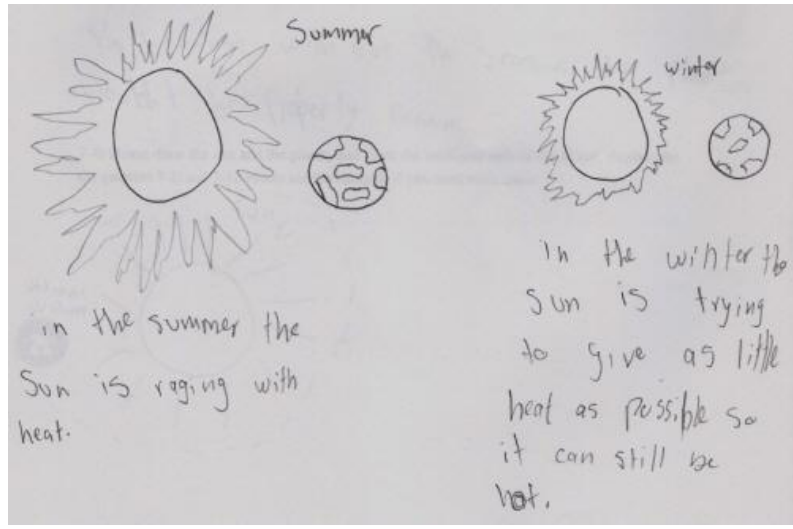 Summer
in the summer the
Sun is raging with
heat.
winter
in the winter the
sun is trying
to give as little
heat as possible so
it can still be
hot.